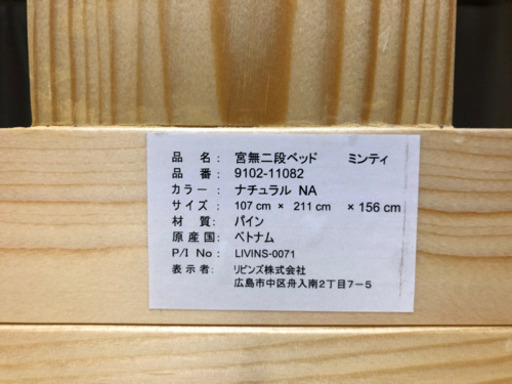 品　名： 宮無二段ベッド　　ミンティ
品　番： 9102-11082
カラー： ナチュラル NA
サイズ： 107 cm × 211 cm × 156 cm
材　質： パイン
原産国： ベトナム
P/I No： LIVINS-0071
表示者： リビンズ株式会社
広島市中区舟入南2丁目7-5